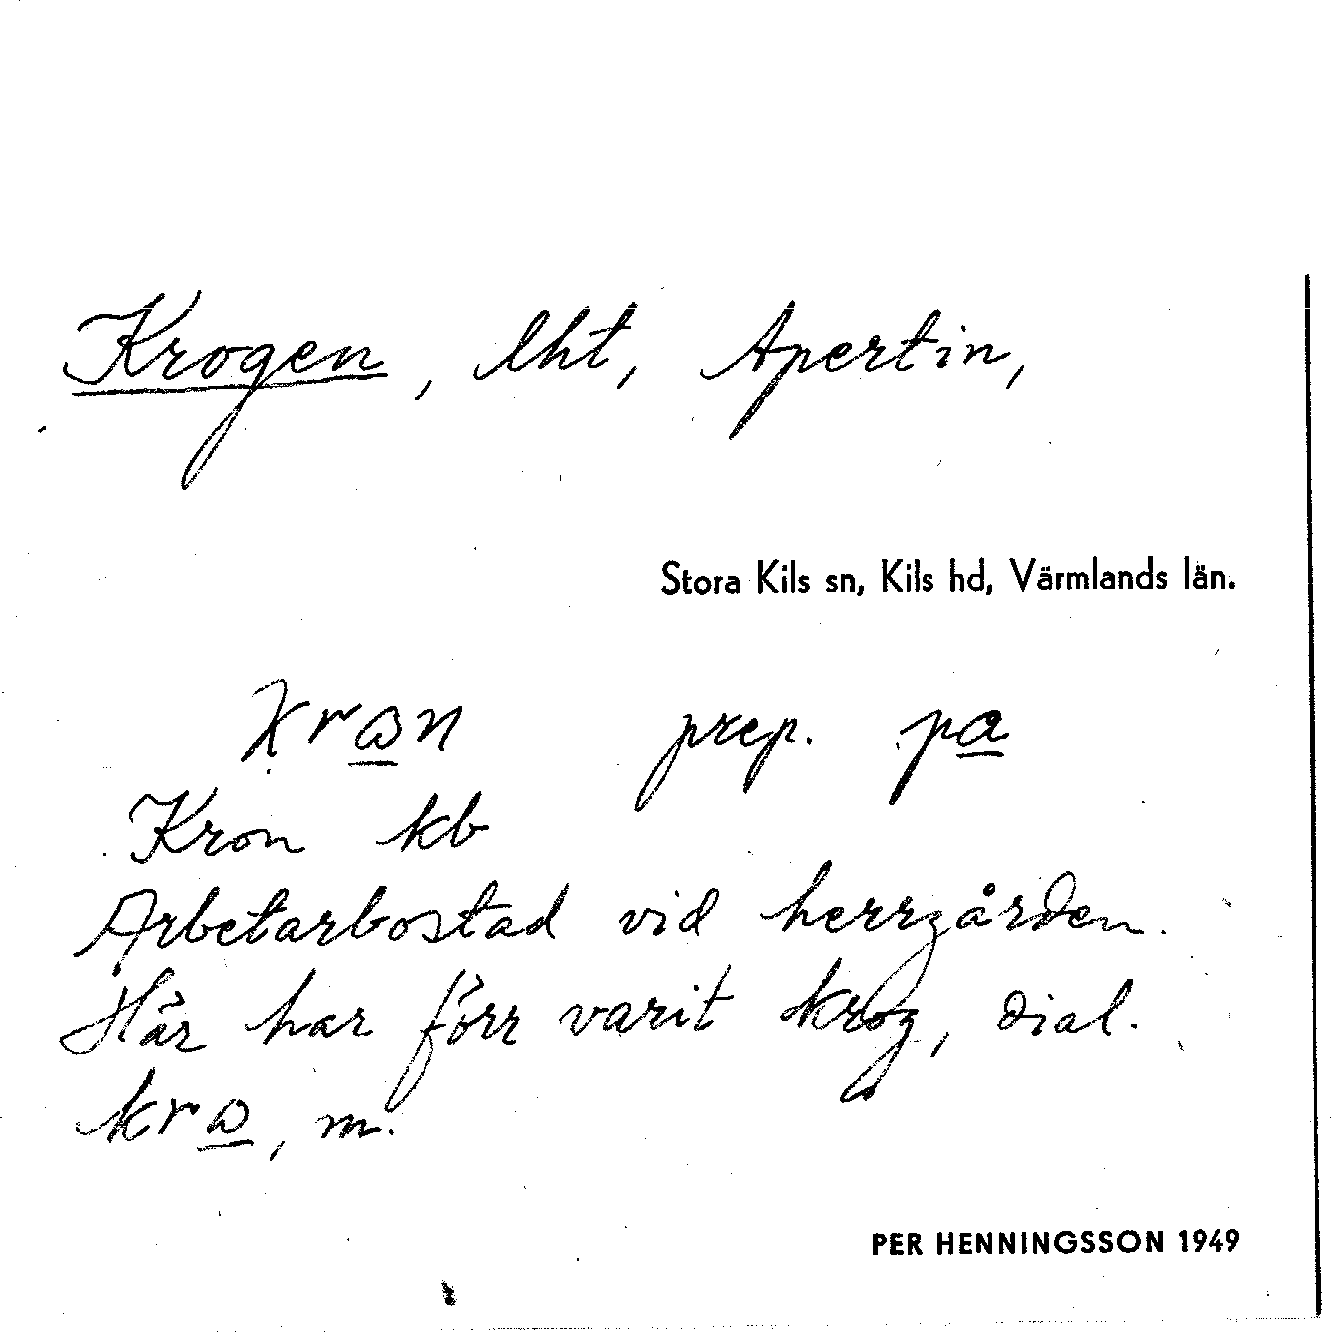 Krogen, lht, Apertin,
Stora Kils sn, Kils hd, Värmlands län.
prep. pa
Kron kb
Arbetarbostad vid herrgården.
Här har förr varit krog, dial.
m.
PER HENNINGSSON 1949